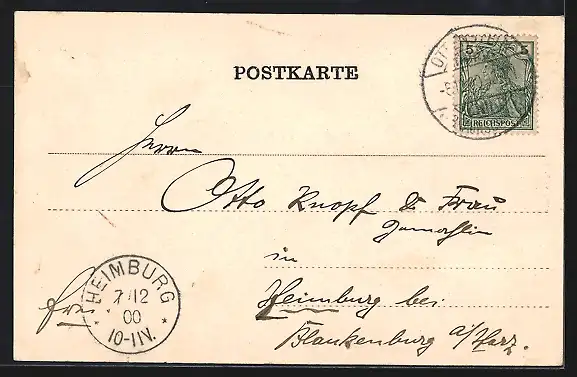 5 5
REICHSPOST
POSTKARTE
Herrn
Otto Knopf & Frau
Gemahlin
in
Heimburg bei
Blankenburg a/Harz.
frei
HEIMBURG
7/12
00
10-11V.